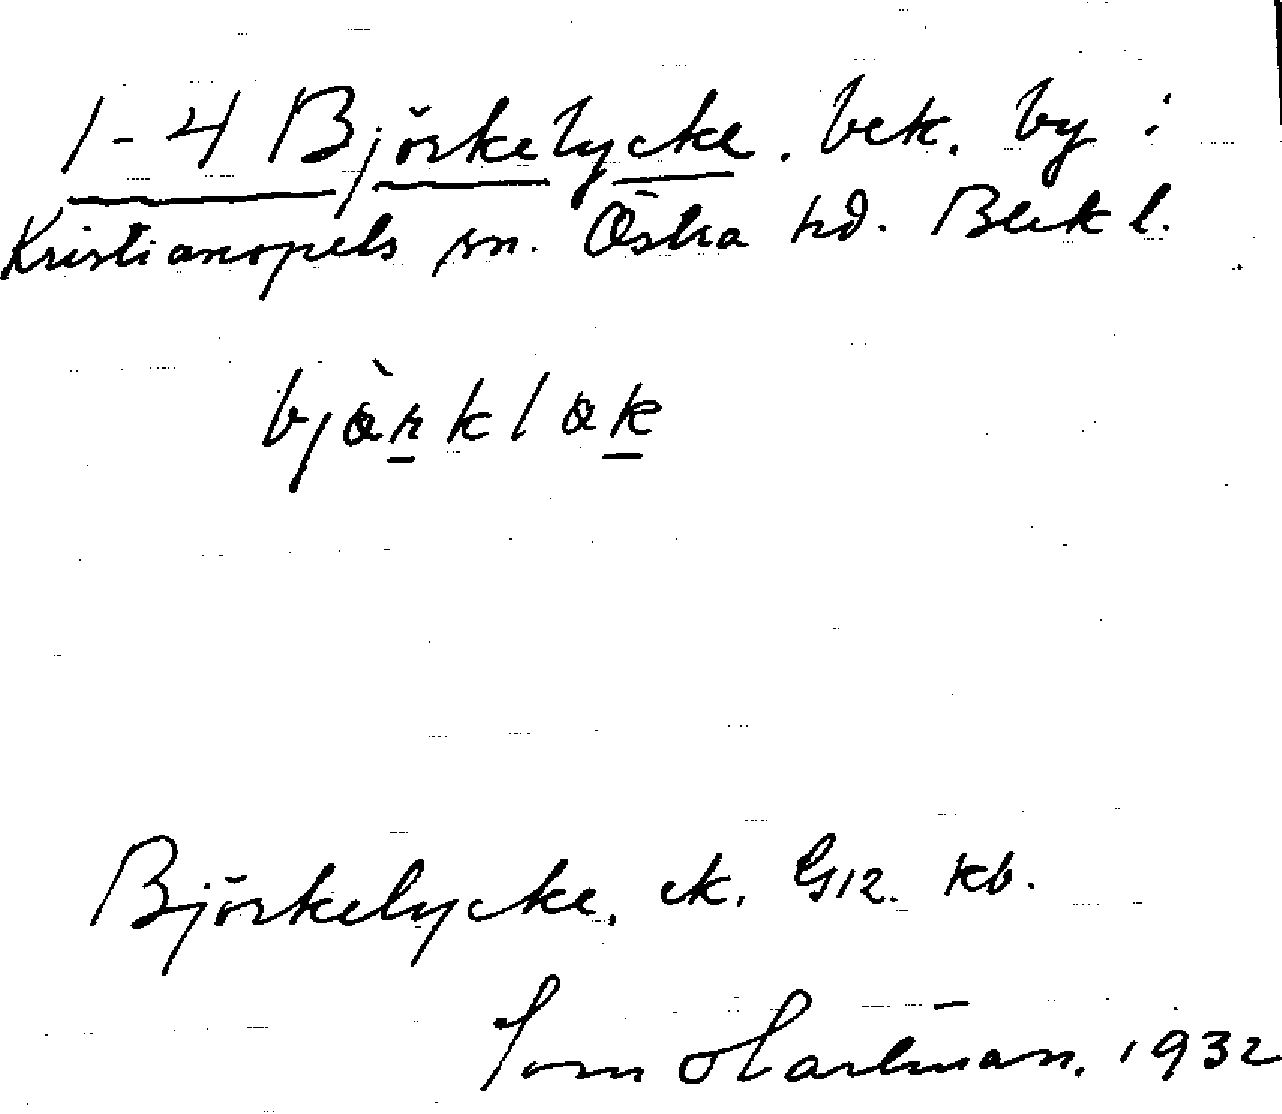 1-4 Björkelycke. bek. by i
Kristianopels sn. Östra hd. Blek l.
bjàrklak
Björkelycke. ek. G12. kb.
Hartman. 1932